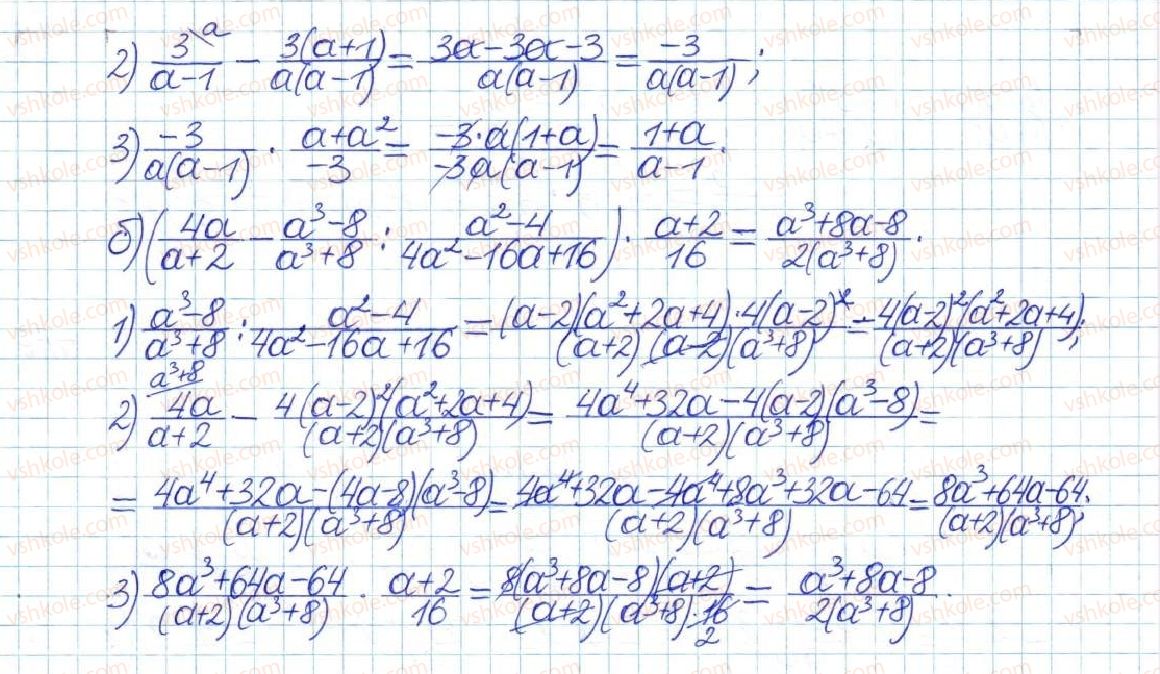 2) 3\a/(a-1) - 3(a+1)/(a(a-1)) = (3a-3a-3)/(a(a-1)) = -3/(a(a-1));
3) -3/(a(a-1)) · (a+a²)/-3 = (-3·a(1+a))/(-3a(a-1)) = (1+a)/(a-1).
б) (4a/(a+2) - (a³-8)/(a³+8) : (a²-4)/(4a²-16a+16)) · (a+2)/16 = (a³+8a-8)/(2(a³+8)).
1) (a³-8)/(a³+8) : (a²-4)/(4a²-16a+16) = ((a-2)(a²+2a+4)·4(a-2)²)/((a+2)(a-2)(a³+8)) = (4(a-2)²(a²+2a+4))/((a+2)(a³+8));
2) a³+8/ 4a/(a+2) - (4(a-2)²(a²+2a+4))/((a+2)(a³+8)) = (4a⁴+32a-4(a-2)(a³-8))/((a+2)(a³+8)) =
= (4a⁴+32a-(4a-8)(a³-8))/((a+2)(a³+8)) = (4a⁴+32a-4a⁴+8a³+32a-64)/((a+2)(a³+8)) = (8a³+64a-64)/((a+2)(a³+8));
3) (8a³+64a-64)/((a+2)(a³+8)) · (a+2)/16 = (8(a³+8a-8)(a+2))/((a+2)(a³+8)·16 2) = (a³+8a-8)/(2(a³+8)).
vshkole.com